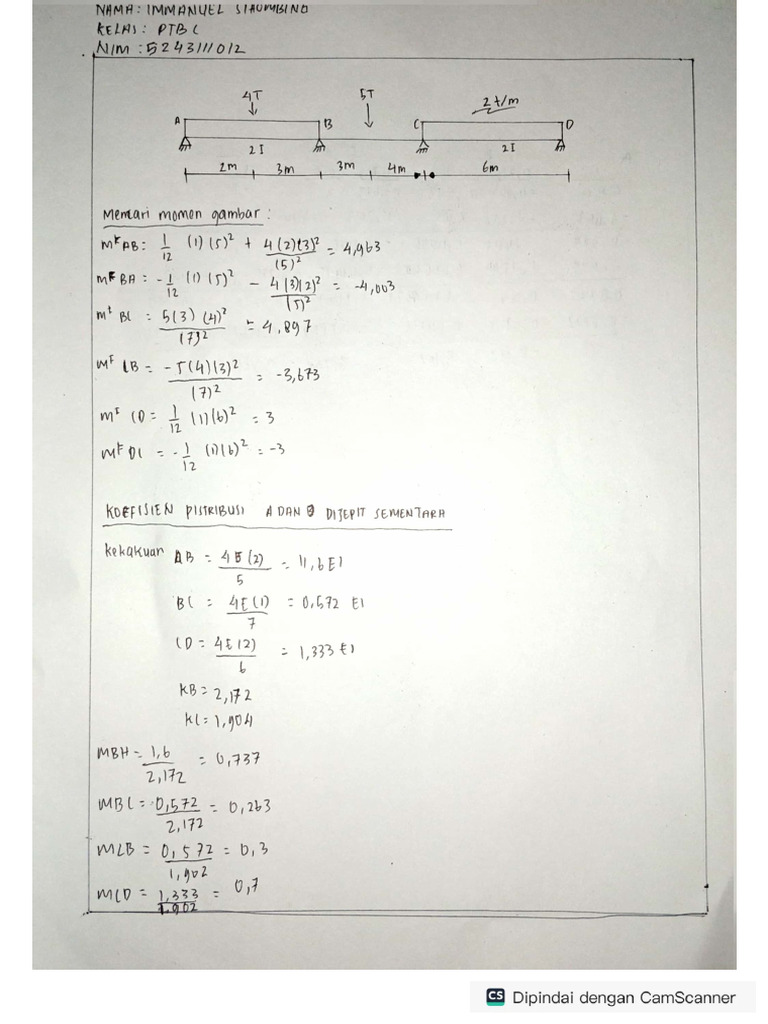 NAMA: IMMANUEL SIHOMBING
KELAS: PTB C
NIM : 5243111012
4T 5T 2 t/m
A B C D
2I 2I
2m 3m 3m 4m 6m
Mencari momen gambar :
MᶠAB: 1/12 (1) (5)² + 4(2)(3)²/(5)² = 4,963
MᶠBA = -1/12 (1) (5)² - 4(3)(2)²/(5)² = -4,003
MᶠBC = 5(3)(4)²/(7)² = 4,897
MᶠCB = -5(4)(3)²/(7)² = -3,673
MᶠCD = 1/12 (1)(6)² = 3
MᶠDC = -1/12 (1)(6)² = -3
KOEFISIEN DISTRIBUSI A DAN D DIJEPIT SEMENTARA
Kekakuan AB = 4E(2)/5 = 1,6EI
BC = 4E(1)/7 = 0,572 EI
CD = 4E(2)/6 = 1,333 EI
KB = 2,172
KC = 1,904
MBA = 1,6/2,172 = 0,737
MBC = 0,572/2,172 = 0,263
MCB = 0,572/1,902 = 0,3
MCD = 1,333/1,902 = 0,7
CS Dipindai dengan CamScanner